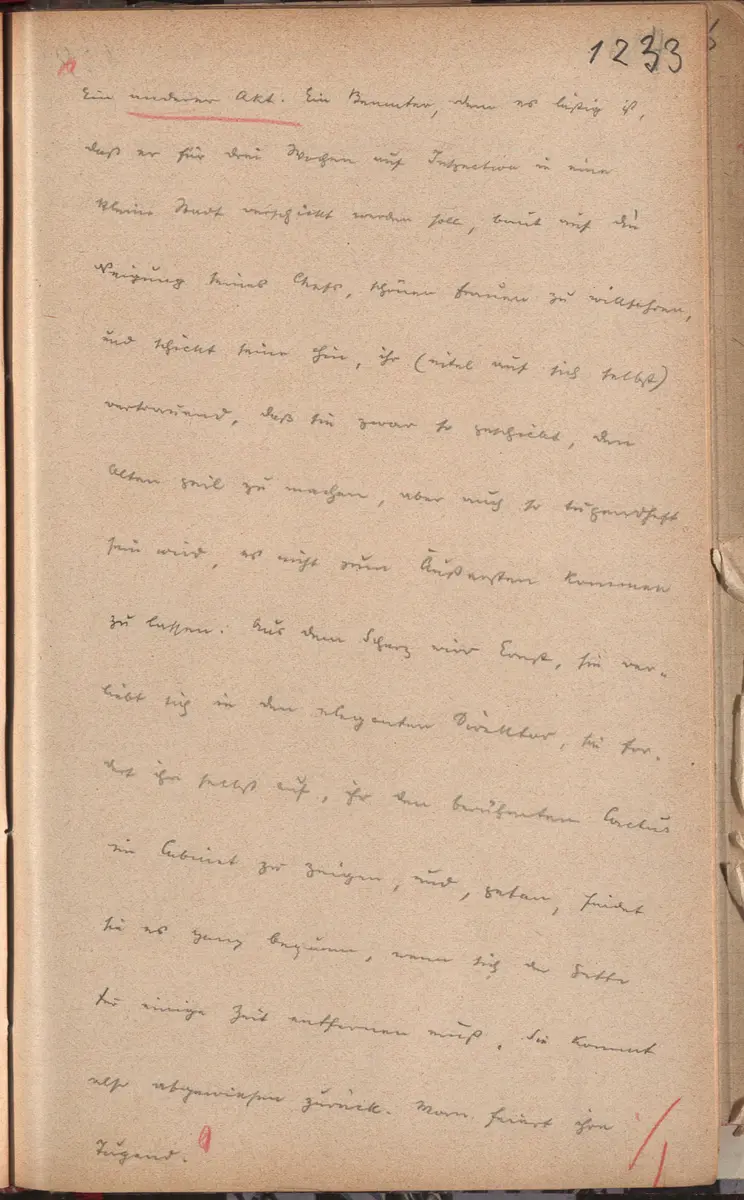 1233
Ein anderer Akt. Ein Beamter, dem es lästig ist,
daß er für drei Wochen auf Inspection in eine
kleine Stadt verschickt werden soll, baut auf die
Neigung seines Chefs, schönen Frauen zu willfahren,
und schickt seine hin, ihr (eitel auf sich selbst)
vertrauend, daß sie zwar so geschickt, den
Alten geil zu machen, aber auch so tugendhaft
sein wird, es nicht zum Äußersten kommen
zu lassen. Aus dem Scherz wird Ernst, sie ver-
liebt sich in den eleganten Direktor, sie for-
dert ihn selbst auf, ihr den berühmten Cactus
im Cabinet zu zeigen, und, getan, findet
sie es ganz bequem, wenn sich der Gatte
für einige Zeit entfernen muß. Sie kommt
also abgewiesen zurück. Man feiert ihre
Tugend.